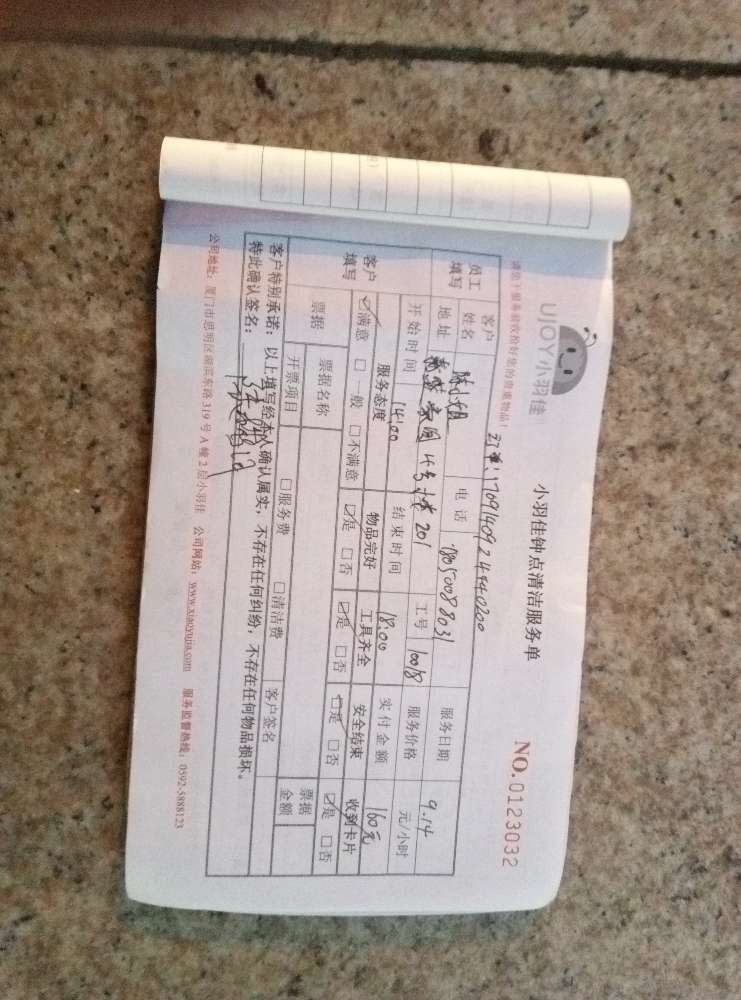 UIOY小羽佳
小羽佳钟点清洁服务单
NO.0123032
请您于服务前收拾好您的贵重物品!
订单:1709140924440200
员工填写 客户姓名 陈小姐 电话 服务日期 9.14
地址 4号楼201 工号 10018 服务价格 元/小时
开始时间 14:00 结束时间 18:00 实付金额 160元
客户填写 服务态度 物品完好 工具齐全 安全结束 收到卡片
☑满意 □一般 □不满意 ☑是 □否 ☑是 □否 ☑是 □否 ☑是 □否
票据 票据名称 客户签名 票据金额
开票项目 □服务费 □清洁费
客户特别承诺:以上填写经本人确认属实,不存在任何纠纷,不存在任何物品损坏。
特此确认签名:
公司地址:厦门市思明区湖滨东路319号A幢2层小羽佳 公司网站:www.xiaoyujia.com 服务监督热线:0592-5888123